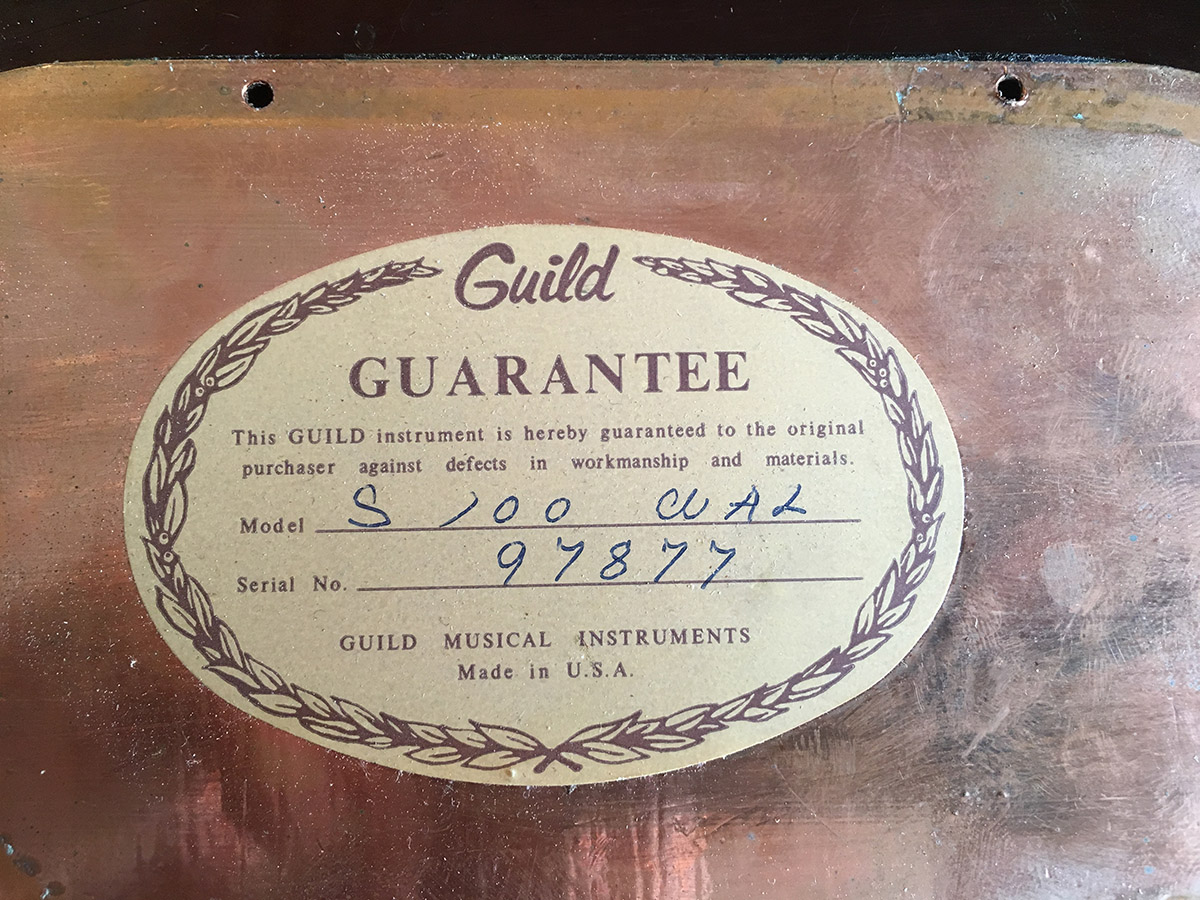 Guild
GUARANTEE
This GUILD instrument is hereby guaranteed to the original
purchaser against defects in workmanship and materials.
Model S 100 WAL
Serial No. 97877
GUILD MUSICAL INSTRUMENTS
Made in U.S.A.